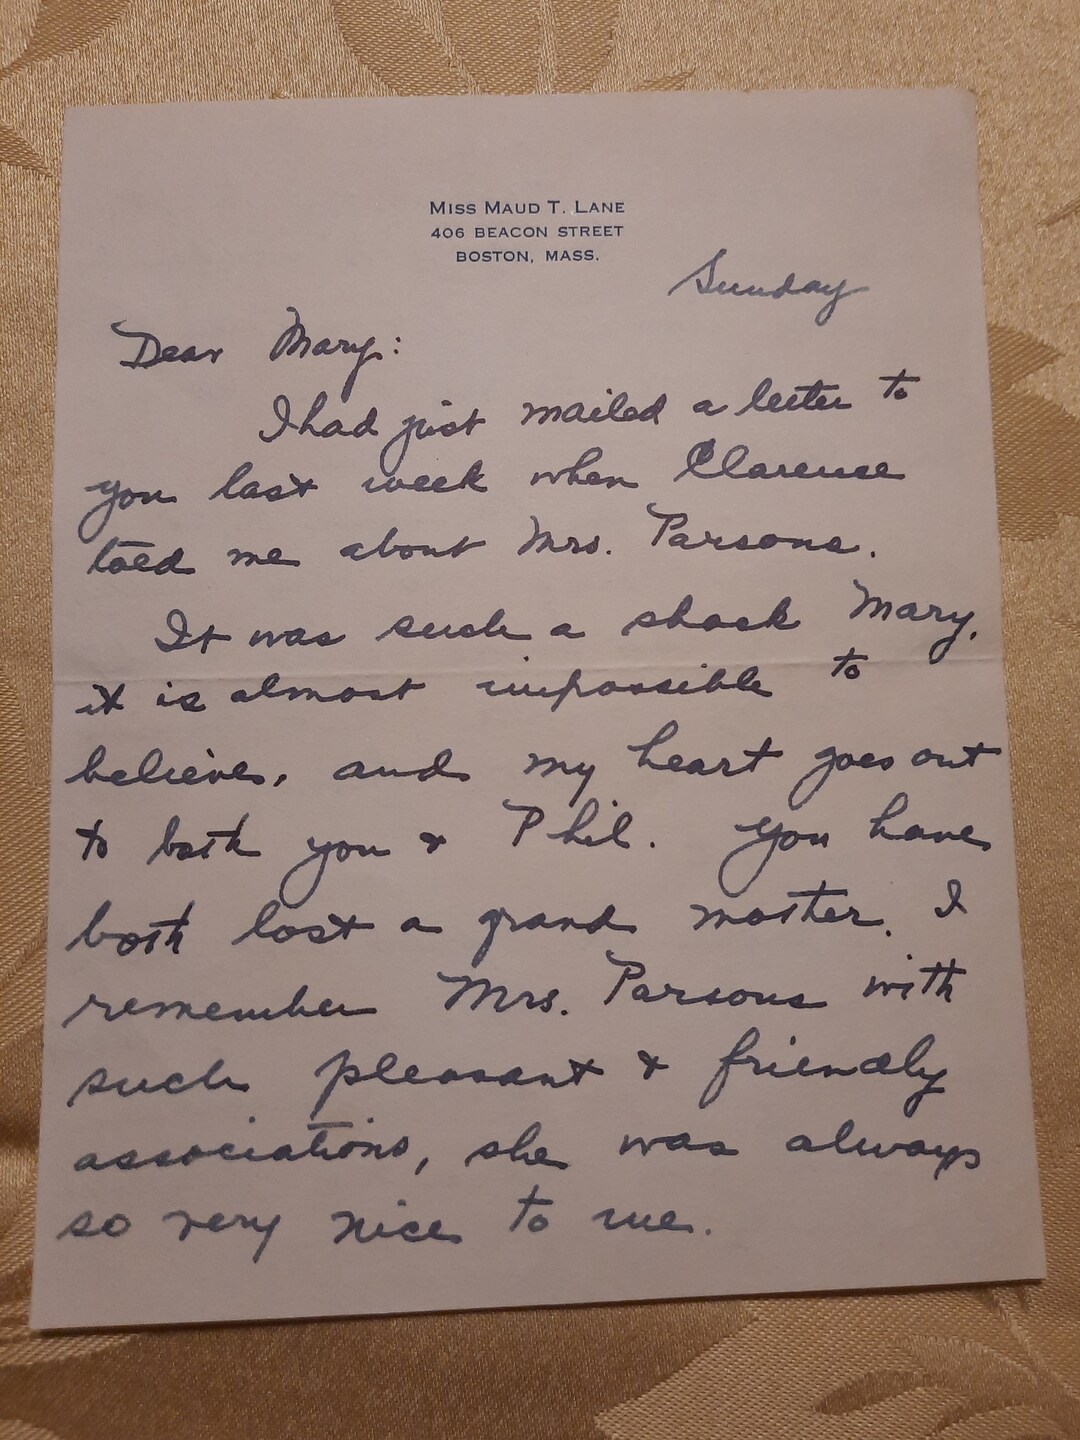 MISS MAUD T. LANE
406 BEACON STREET
BOSTON, MASS.
Sunday
Dear Mary:
I had just mailed a letter to
you last week when Clarence
told me about Mrs. Parsons.
It was such a shock Mary,
it is almost impossible to
believe, and my heart goes out
to both you & Phil. You have
both lost a grand mother. I
remember Mrs. Parsons with
such pleasant & friendly
associations, she was always
so very nice to me.